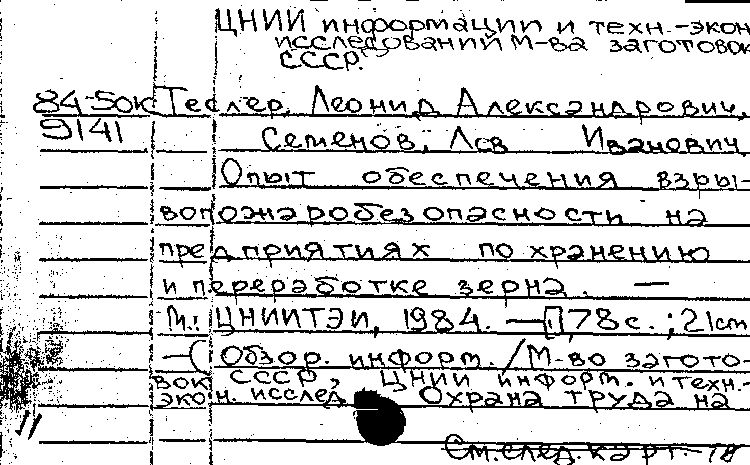 ЦНИИ информации и техн.-экон
исследований М-ва заготовок
СССР.
84-50к Теслер, Леонид Александрович,
9141 Семенов, Лев Иванович
Опыт обеспечения взры-
вопожаробезопасности на
предприятиях по хранению
и переработке зерна. —
М.: ЦНИИТЭИ, 1984. — 78 с.; 21 cm
—(Обзор. информ./М-во загото-
вок СССР, ЦНИИ информ. и техн.-
экон. исслед. Охрана труда на
См. след. карт.